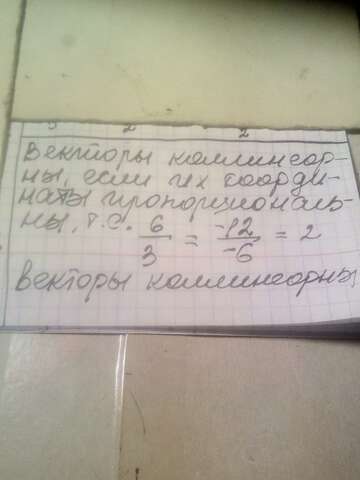 Векторы коллинеар-
ны, если их коорди-
наты пропорциональ-
ны, т.е. 6/3 = -12/-6 = 2
Векторы коллинеарны